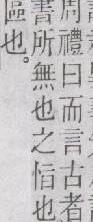 周禮曰而言古者
書所無也之㑄也
區也。